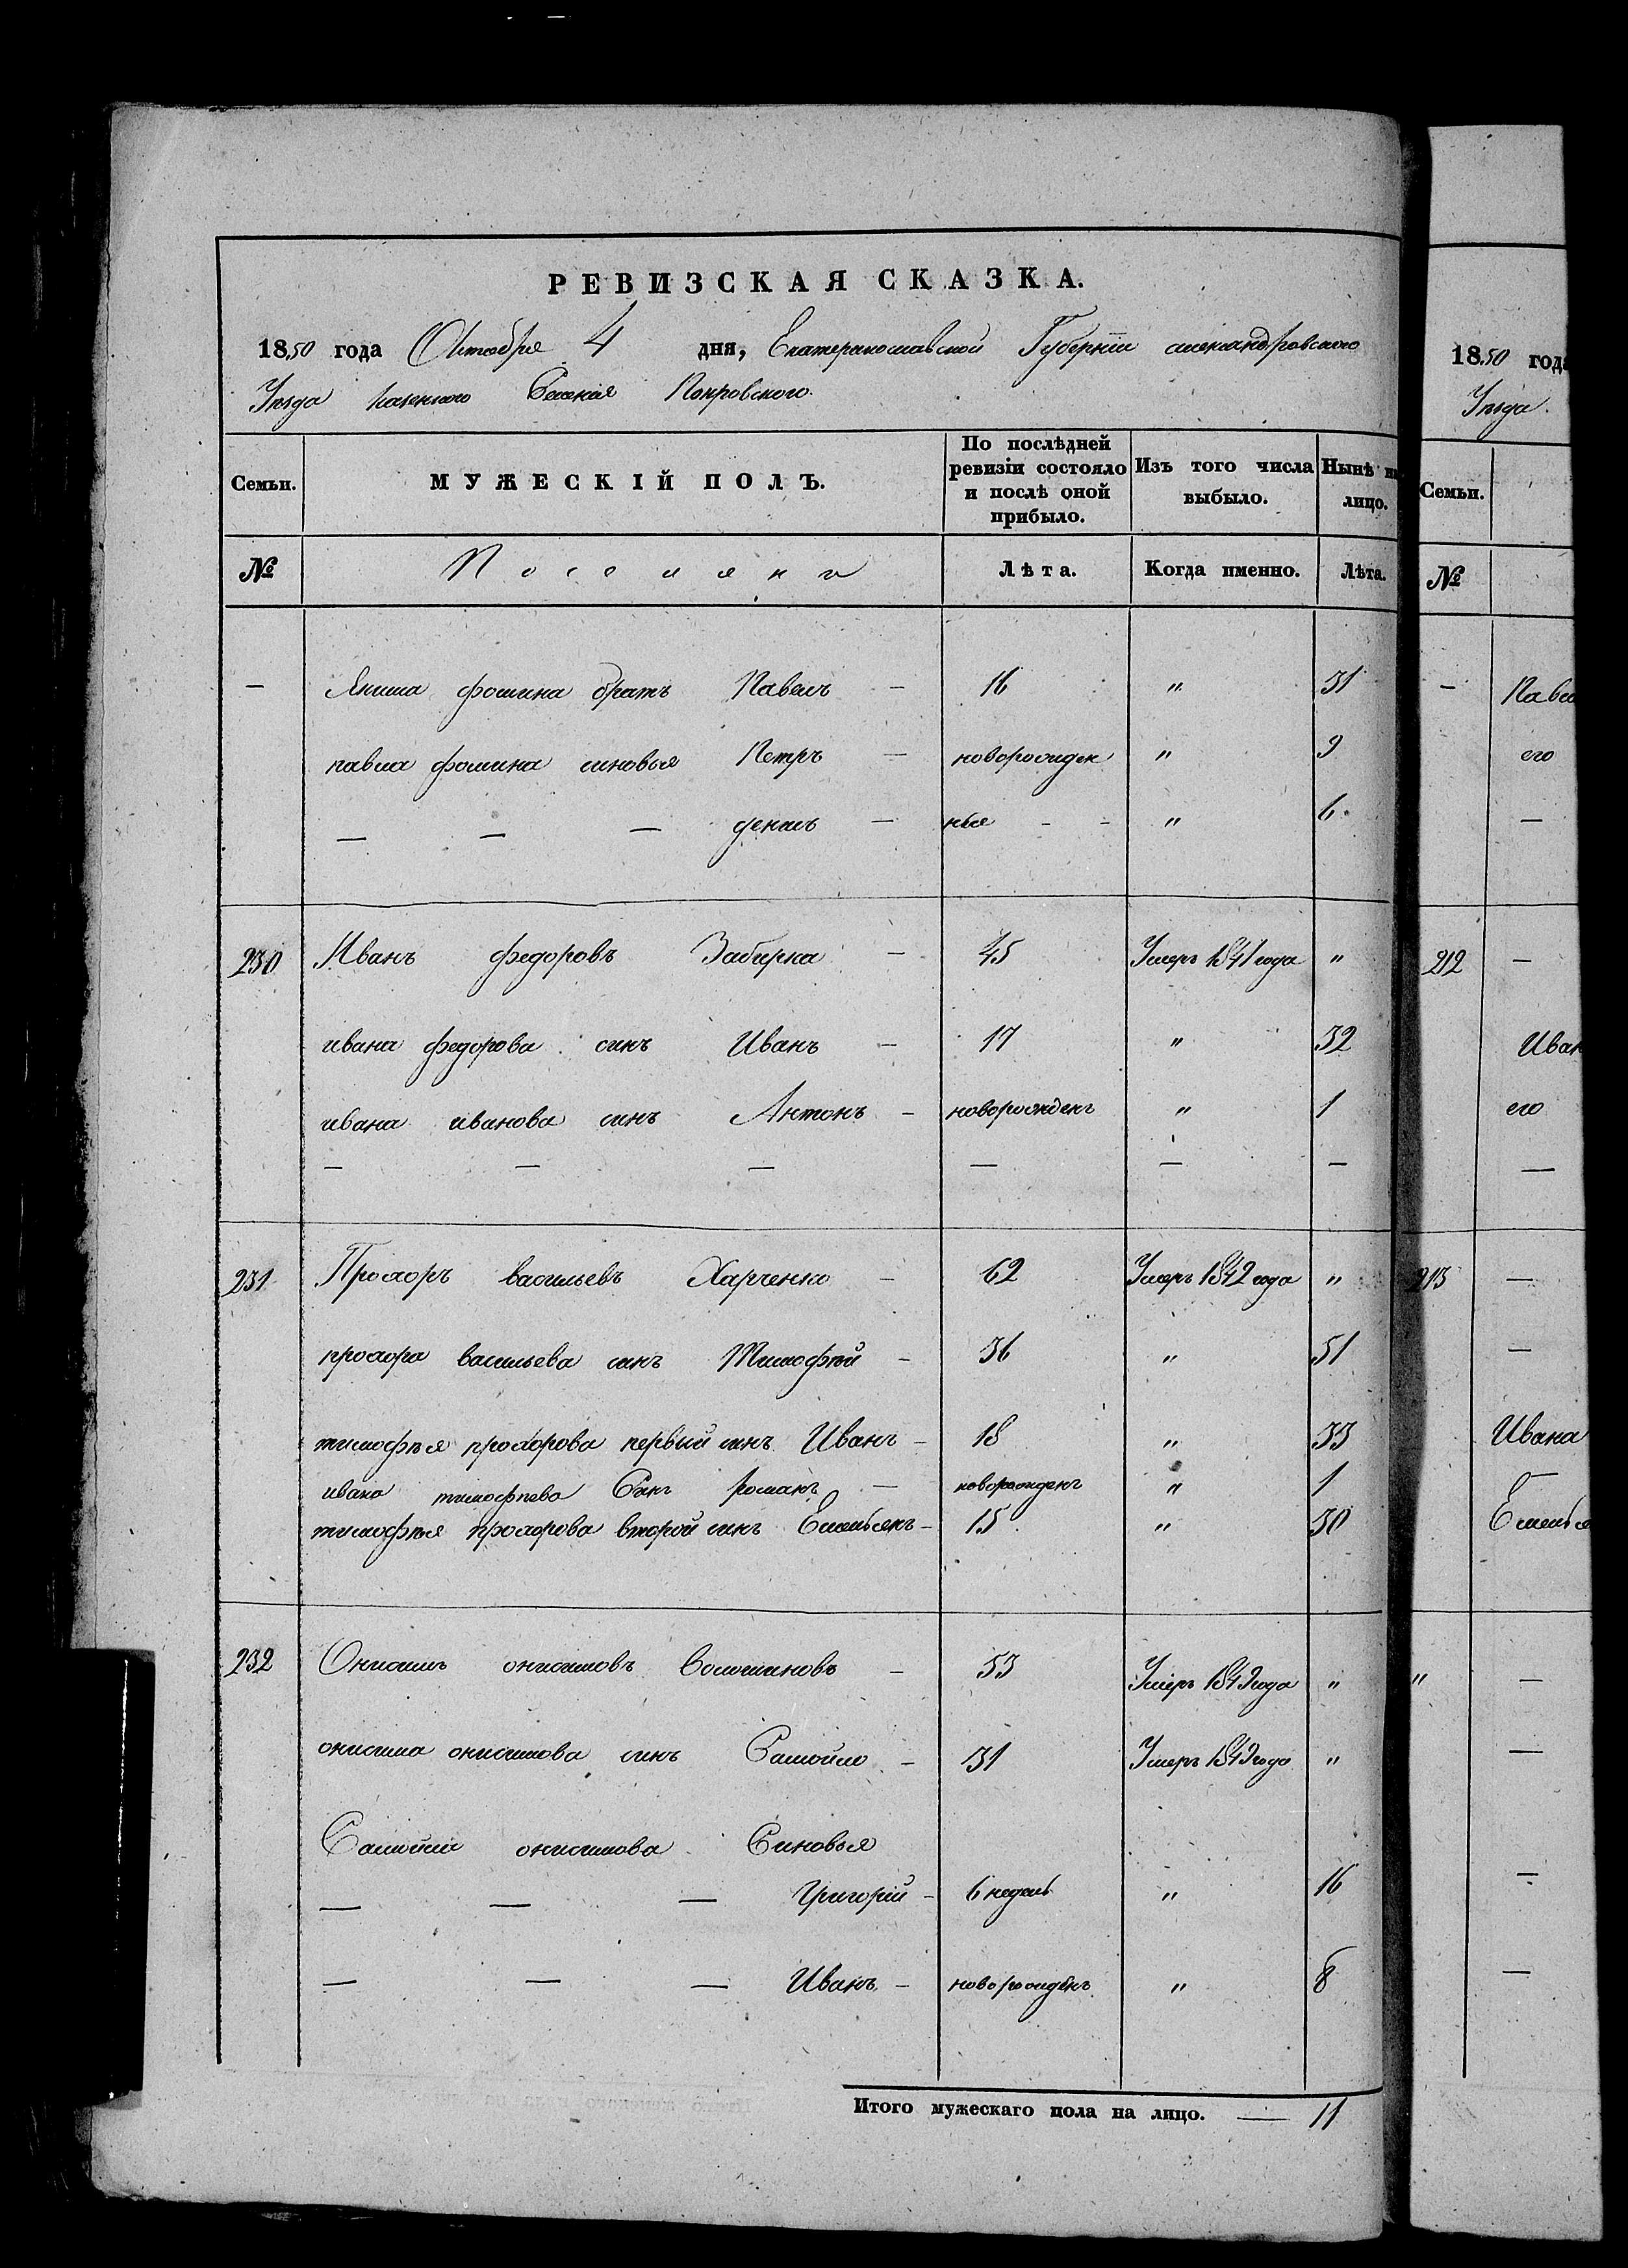 РЕВИЗСКАЯ СКАЗКА.
1850 года Октября 4 дня, Екатеринославской Губерніи александровского
Уѣзда казенного Селенія Покровского.
Семьи. МУЖЕСКІЙ ПОЛЪ. По послѣдней ревизіи состояло и послѣ оной прибыло. Изъ того числа выбыло. Нынѣ на лицо.
№ Поселяни Лѣта. Когда именно. Лѣта.
— Якима фомина братъ Павелъ — 16 " 31
павла фомина синовья Петръ — новорожден " 9
— — — демянъ — ные - - " 6
230 Иванъ федоровъ Забирка — 45 Умеръ 1841 года "
ивана федорова синъ Иванъ — 17 " 32
ивана иванова синъ Антонъ — новорожденъ " 1
— — — — — —
231 Прохоръ васильевъ Харченко — 62 Умеръ 1842 года "
прохора васильева синъ Тимофѣй — 36 " 51
тимофѣя прохорова первый синъ Иванъ — 18 " 33
ивана тимофѣева Синъ романъ — новорожденъ " 1
тимофѣя прохорова второй синъ Емельянъ — 15 " 30
232 Онисимъ онисимовъ Волошиновъ — 53 Умеръ 1849 года "
онисима онисимова синъ Самойло — 31 Умеръ 1849 года "
Самойла онисимова Синовья
— — — Григорій — 6 недель " 16
— — — Иванъ — новорожденъ " 8
Итого мужескаго пола на лицо. — 11
1850 года
Уѣзда
Семьи.
№
— Павла
его
—
212 —
Иван
его
—
213 —
—
Ивана
Емелья
" —
—
—
—